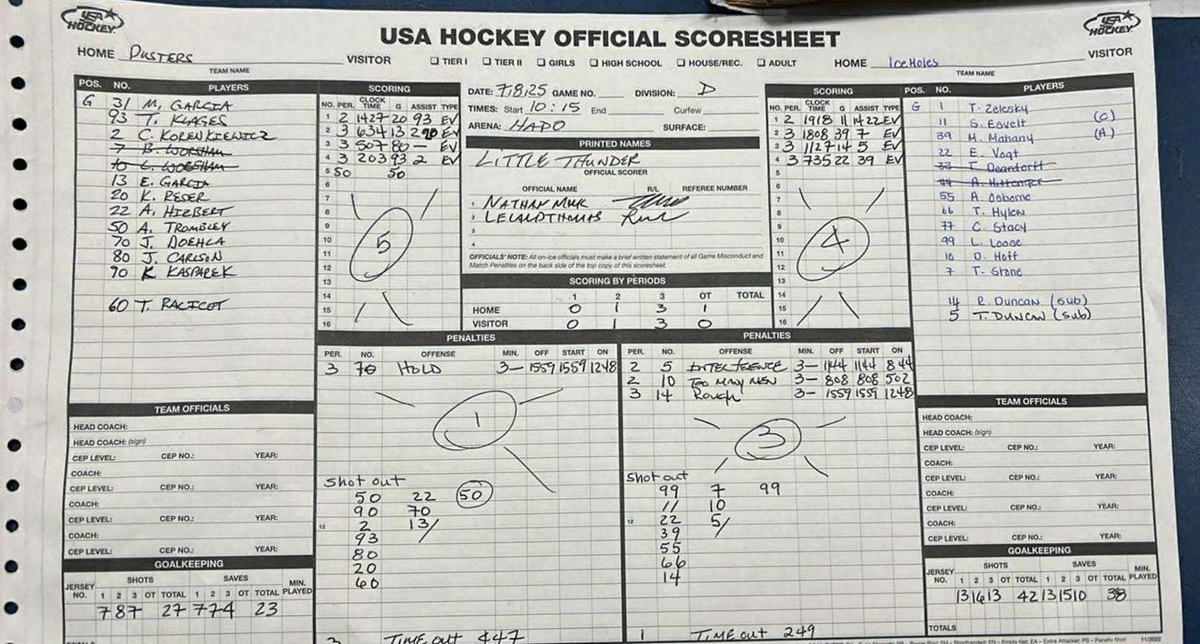 USA HOCKEY
USA HOCKEY OFFICIAL SCORESHEET
USA HOCKEY
HOME DUSTERS VISITOR
TEAM NAME
TIER I TIER II GIRLS HIGH SCHOOL HOUSE/REC. ADULT
HOME IceHoles VISITOR
TEAM NAME
POS. NO. PLAYERS
G 31 M. GARCIA
93 T. KLAGES
2 C. KORENKIEWICZ
7 B. WORSHAM
10 L. WORSHAM
13 E. GARCIA
20 K. RESER
22 A. HIEBERT
50 A. TROMBLEY
70 J. DOEHLA
80 J. CARLSON
90 K KASPAREK
60 T. RACICOT
SCORING
NO. PER. CLOCK TIME G ASSIST TYPE
1 2 1427 20 93 EV
2 3 634 13 2 90 EV
3 3 507 80 — EV
4 3 203 93 2 EV
5 SO 50
6
7
8
9
10
11
12
13
14
15
16
5
DATE: 7.8.25 GAME NO. DIVISION: D
TIMES: Start 10:15 End Curfew
ARENA: HAPO SURFACE:
PRINTED NAMES
LITTLE THUNDER
OFFICIAL SCORER
OFFICIAL NAME R/L REFEREE NUMBER
1 NATHAN MHK
2 LELAND THOMAS
3
4
OFFICIALS' NOTE: All on-ice officials must make a brief written statement of all Game Misconduct and
Match Penalties on the back side of the top copy of this scoresheet.
SCORING BY PERIODS
1 2 3 OT TOTAL
HOME 0 1 3 1
VISITOR 0 1 3 0
SCORING
NO. PER. CLOCK TIME G ASSIST TYPE
1 2 1918 11 14 22 EV
2 3 1808 39 7 EV
3 3 1127 14 5 EV
4 3 735 22 39 EV
5
6
7
8
9
10
11
12
13
14
15
16
4
POS. NO. PLAYERS
G 1 T. Zelesky
11 S. Esveit (C)
39 M. Mahany (A)
22 E. Vogt
33 T. Deandorff
44 A. Hittenger
55 A. Osborne
66 T. Hylen
77 C. Stacy
99 L. Loose
10 D. Hoff
7 T. Stone
14 R. Duncan (sub)
5 T. DUNCAN (sub)
PENALTIES
PER. NO. OFFENSE MIN. OFF START ON
3 70 HOLD 3— 1559 1559 1248
1
Shot out
50 22 50
90 70
2 13/
93
80
20
60
12
TIME OUT 447
PENALTIES
PER. NO. OFFENSE MIN. OFF START ON
2 5 INTERFERENCE 3— 1144 1144 844
2 10 TOO MANY MEN 3— 808 808 502
3 14 Rough 3— 1559 1559 1248
3
Shot out
99 7 99
11 10
22 5/
39
55
66
14
12
1 TIME OUT 249
TEAM OFFICIALS
HEAD COACH:
HEAD COACH: (sign)
CEP LEVEL: CEP NO.: YEAR:
COACH:
CEP LEVEL: CEP NO.: YEAR:
COACH:
CEP LEVEL: CEP NO.: YEAR:
COACH:
CEP LEVEL: CEP NO.: YEAR:
GOALKEEPING
JERSEY NO. SHOTS SAVES MIN. PLAYED
1 2 3 OT TOTAL 1 2 3 OT TOTAL
7 8 7 27 7 7 4 23
TEAM OFFICIALS
HEAD COACH:
HEAD COACH: (sign)
CEP LEVEL: CEP NO.: YEAR:
COACH:
CEP LEVEL: CEP NO.: YEAR:
COACH:
CEP LEVEL: CEP NO.: YEAR:
COACH:
CEP LEVEL: CEP NO.: YEAR:
GOALKEEPING
JERSEY NO. SHOTS SAVES MIN. PLAYED
1 2 3 OT TOTAL 1 2 3 OT TOTAL
13 16 13 42 13 15 10 38
TOTALS
11/2022